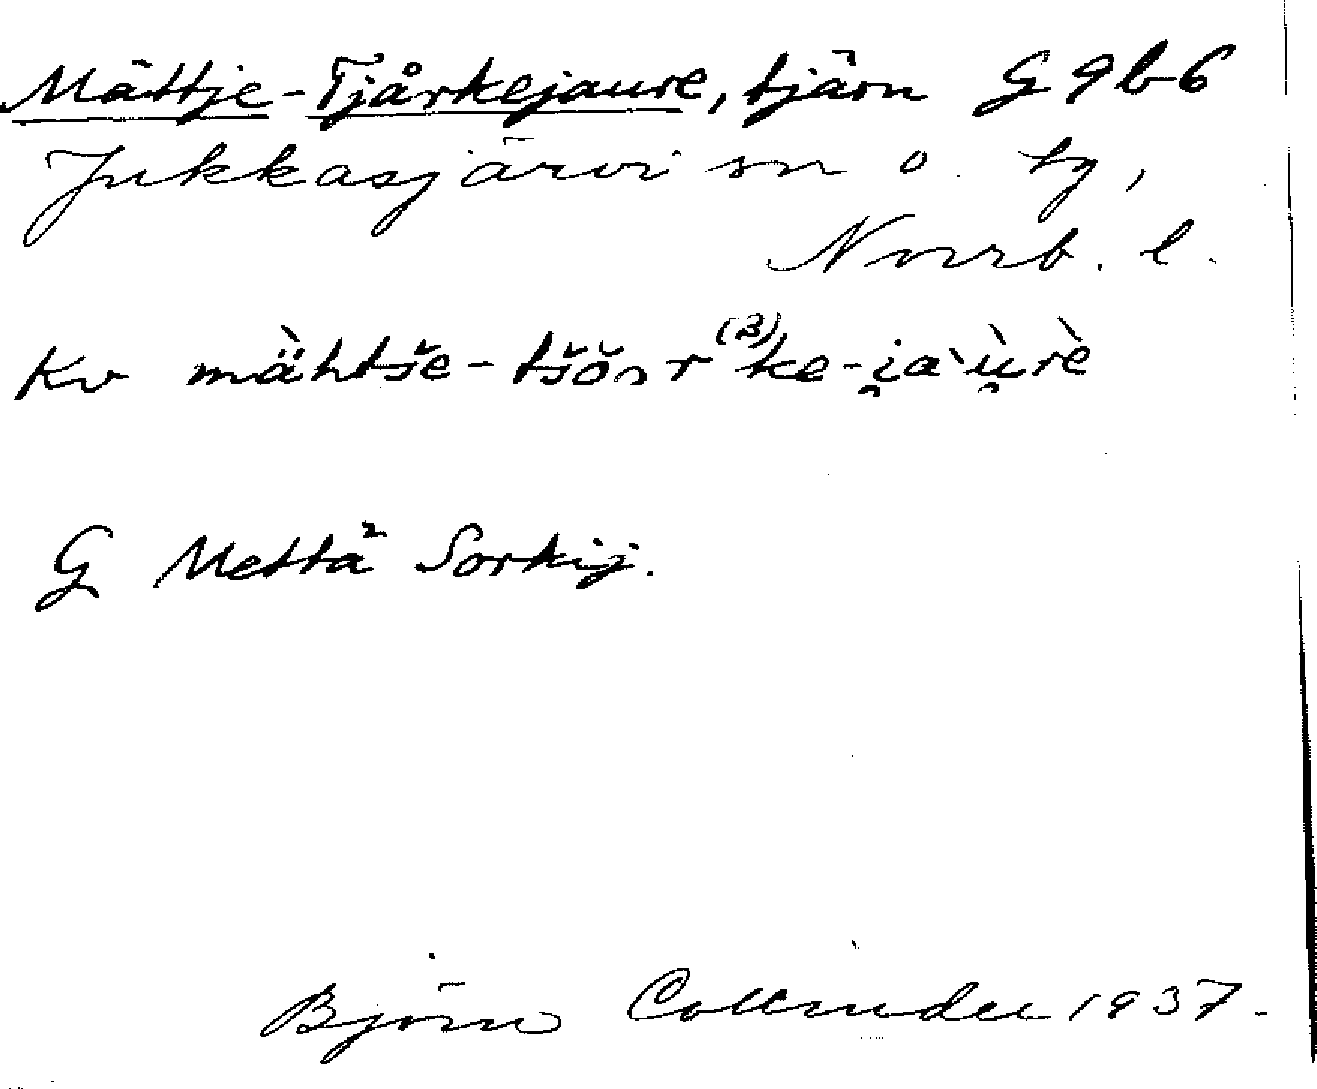 Mättje-Tjårkejaure, tjärn G 9 b 6
Jukkasjärvi sn o. tg,
Norrb. l.
Kv mä̀htše-tšŏ̭r⁽³⁾ke-i̯aˋù̯rè
G Mettä Sorkij.
Björn Collinder 1937.